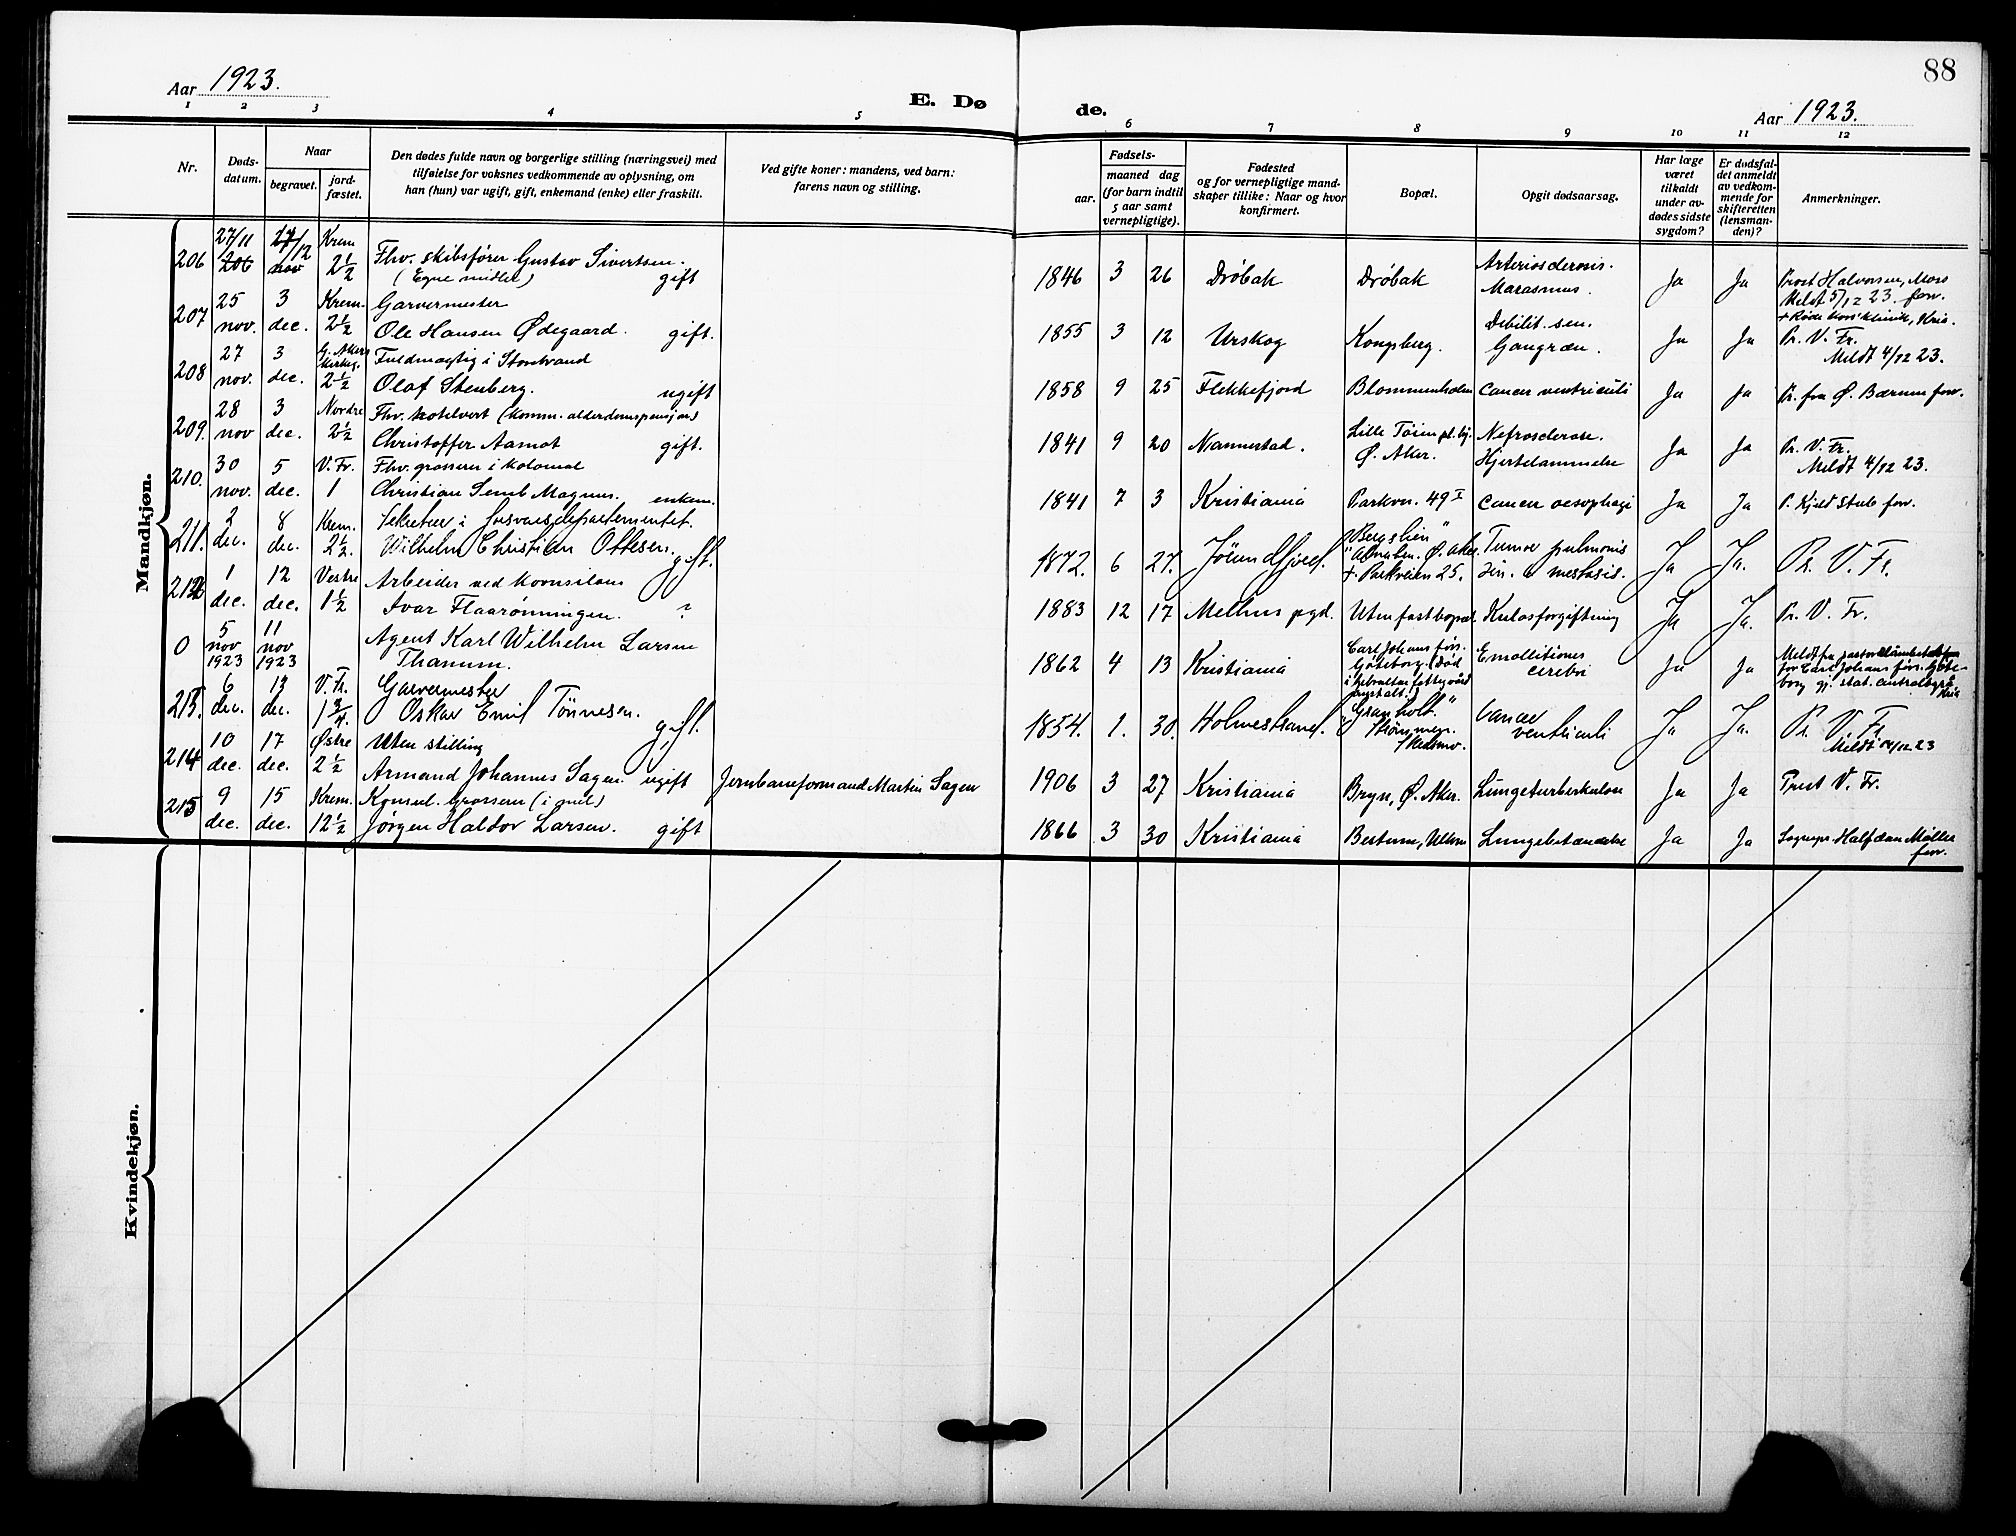 88
Aar 1923.
E. Døde.
Aar 1923.
1 2 3 4 5 6 7 8 9 10 11 12
Nr.
Døds-
datum.
Naar
begravet.
jord-
fæstet.
Den dødes fulde navn og borgerlige stilling (næringsvei) med
tilføielse for voksnes vedkommende av oplysning, om
han (hun) var ugift, gift, enkemand (enke) eller fraskilt.
Ved gifte koner: mandens, ved barn:
farens navn og stilling.
Fødsels-
aar.
maaned dag
(for barn indtil
5 aar samt
vernepligtige).
Fødested
og for vernepligtige mand-
skaper tillike: Naar og hvor
konfirmert.
Bopæl.
Opgit dødsaarsag.
Har læge
været
tilkaldt
under av-
dødes sidste
sygdom?
Er dødsfal-
det anmeldt
av vedkom-
mende for
skifteretten
(lensman-
den)?
Anmerkninger.
Mandkjøn.
206 27/11 Krem 2½
Fhv. skibsfører Gustav Sivertsen.
(Egne midler) gift
1846 3 26 Drøbak Drøbak
Marasmus.
Ja Ja Prost Halvorsen, Moss
Meldt 5/12 23. forr.
207 25 nov. 3 dec. Krem. 2½
Garvermester
Ole Hansen Ødegaard. gift.
1855 3 12 Urskog Kongsberg.
Debilit. sen.
Gangræn.
Ja Ja Pr. V. Fr.
Meldt 4/12 23.
208 27 nov. 3 dec. G. Akers kirkeg. 2½
Fuldmægtig i Storebrand
Olaf Stenberg. ugift
1858 9 25 Flekkefjord Blommenholm Cancer ventriculi
Ja Ja Pr. fra Ø. Bærum forr.
209. 28 nov 3 dec. Nordre 2½
Fhv. hotelvert (komm. alderdomspensjon)
Christoffer Aamot gift.
1841 9 20 Nannestad. Lille Tøien
Ø. Aker.
Nefrosclerose.
Hjertelammelse
Ja Ja Pr. V. Fr.
Meldt 4/12 23.
210. 30 nov. 5 dec. V. Fr. 1
Fhv. grosserer i kolonial
Christian Semb Magnus. enkem.
1841 7 3 Kristiania Parkvn. 49 I Cancer oesophagi
Ja Ja P. Kjeld Stub forr.
211. 2 dec. 8 dec. Krem. 2½.
Sekretær i forsvarsdepartementet.
Wilhelm Christian Ottesen. gift.
1872. 6 27.
"Bergslien"
Ø. Aker.
+ Parkveien 25.
Tumor pulmonis
Ja Ja. Pr. V. Fr.
212 1 dec. 12 dec. Vestre 1½
Arbeider ved kornsiloen
Ivar Flaarønningen. ?
1883 12 17 Melhus pgd. Uten fast bopæl. Kulosforgiftning
Ja Ja. Pr. V. Fr.
0 5 nov 1923 11 nov 1923
Agent Karl Wilhelm Larsen
Thanum.
1862 4 13 Kristiania
Carl Johans förs.
Göteborg (Död
Emollitiones
cerebri
Ja Ja
213. 6 dec. 13 dec. V. Fr. 1¾.
Garvermester
Oskar Emil Tønnesen. gift.
1854. 1. 30. Holmestrand.
"Granholt."
Strømmen.
Skedsmo.
Cancer
ventriculi
Ja Ja. Pr. V. Fr
214 10 dec. 17 dec. Østre 2½
Uten stilling
Armand Johannes Sagen. ugift
Jernbaneformand Martin Sagen
1906 3 27 Kristiania Bryn, Ø. Aker. Lungetuberkulose
Ja Ja Prest V. Fr.
215 9 dec. 15 dec. Krem. 12½
Konsul. Grosserer
Jørgen Haldor Larsen. gift
1866 3 30 Kristiania Bestum, Ullern Lungebetændelse
Ja Ja Sognepr. Halfdan Møller
forr.
Kvindekjøn.